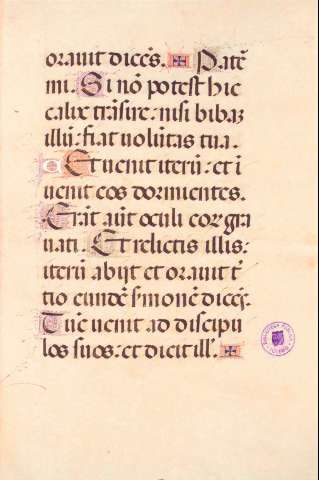 orauit dicēs. ✠ Patē
mi. Si nō potest hic
calix trāsire: nisi bibaʒ
illū: fiat uolūtas tua.
Et uenit iterū: et ī
uenit eos dormientes.
Erāt aūt oculi eoꝝ gra
uati. Et relictis illis:
iterū abijt et orauit t̄
tio eundē s̄monē dicēs.
Tūc uenit ad discipu
los suos: et dicit ill'. ✠